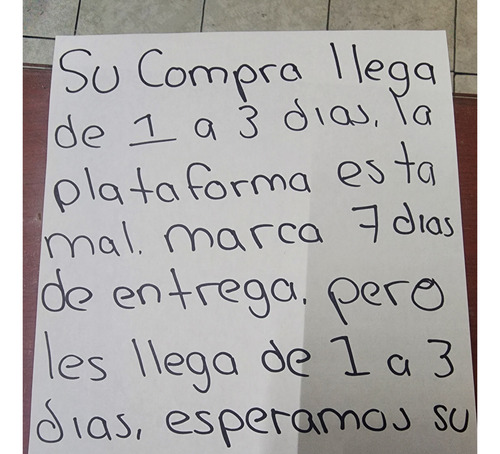 Su Compra llega
de 1 a 3 dias, la
plataforma esta
mal. marca 7 dias
de entrega. pero
les llega de 1 a 3
dias, esperamos su